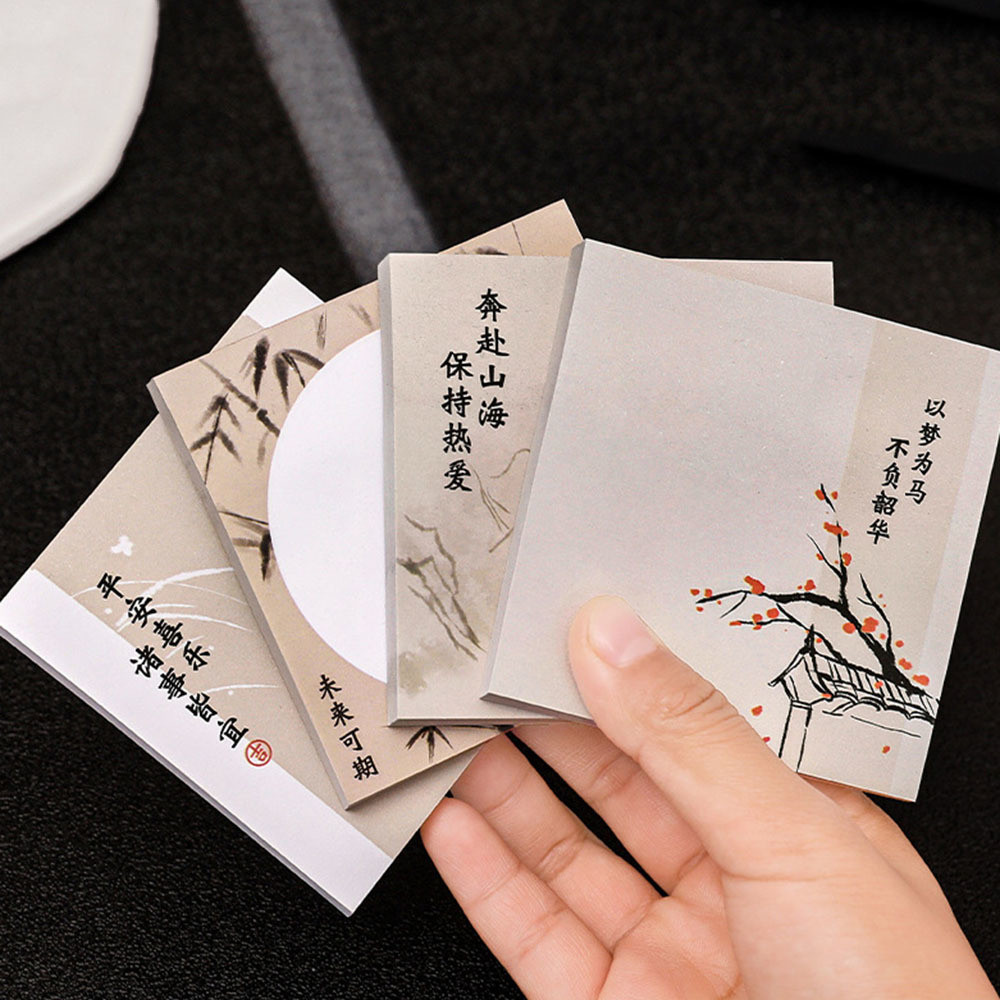 平安喜乐
诸事皆宜
吉
未来可期
奔赴山海
保持热爱
以梦为马
不负韶华